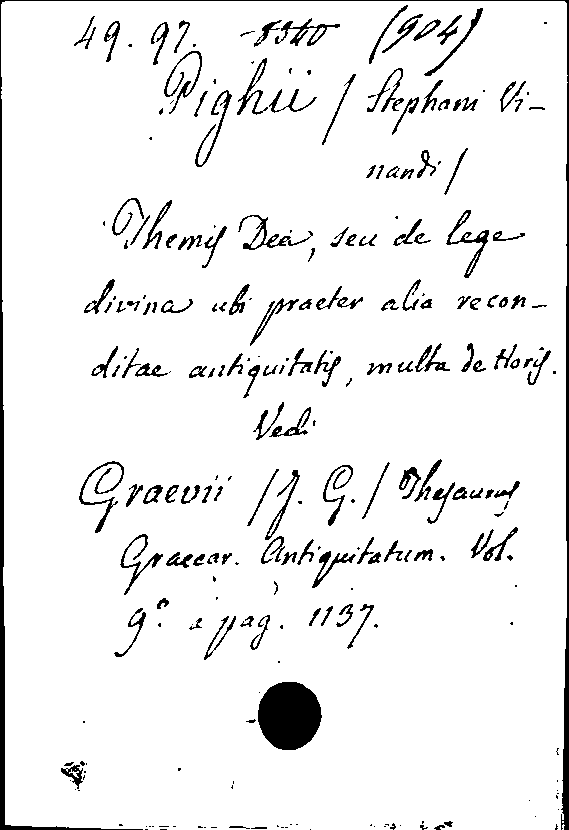 49. 97. 8340 (904)
Pighii / Stephani Vi-
nandi /
Themis Dea, seu de lege
divina ubi praeter alia recon-
ditae antiquitatis, multa de Horis.
Vedi
Graevii / J. G. / Thesaurus
Graecar. Antiquitatum. Vol.
9.° a pag. 1137.